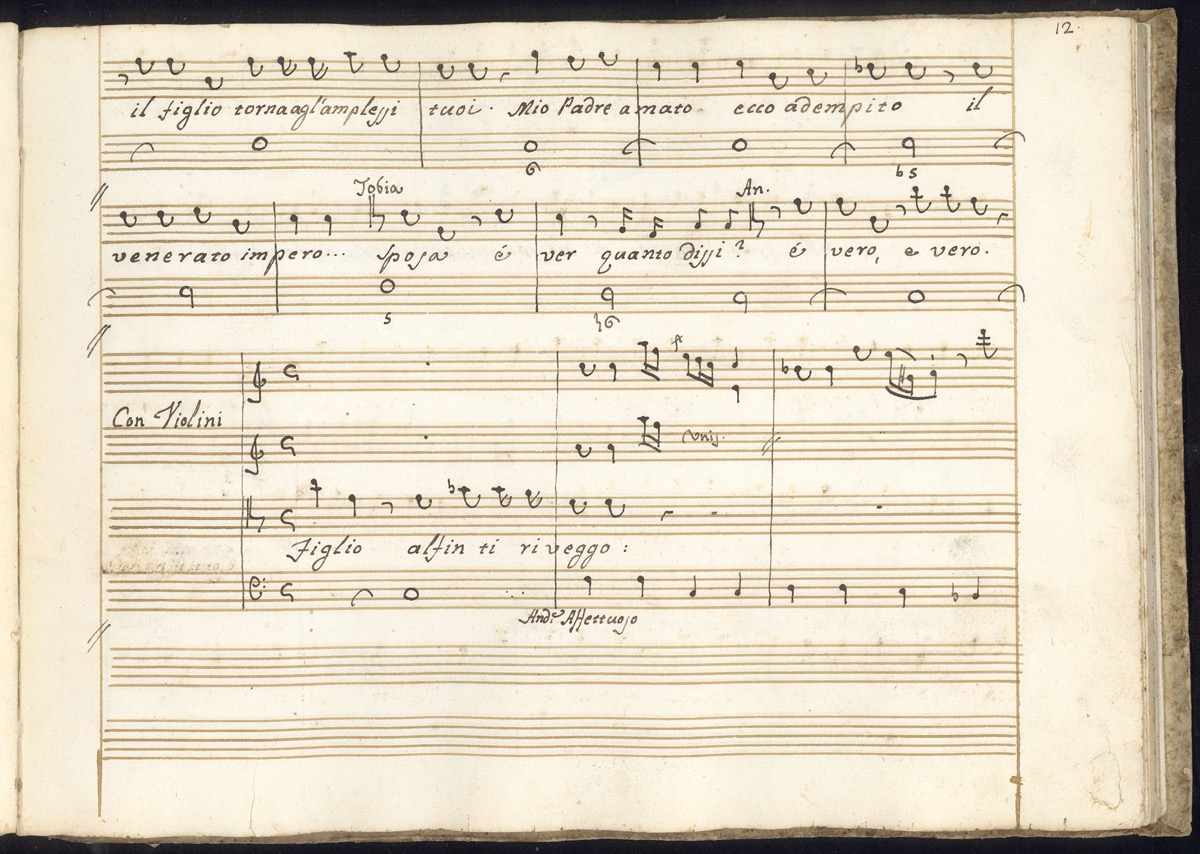 12.
il figlio torna agl'amplessi tuoi. Mio Padre amato ecco adempito il
Tobia An.
venerato impero... sposa é ver quanto dissi? é vero, e vero.
Con Violini
unis.
Figlio alfin ti riveggo:
And.e Affettuoso